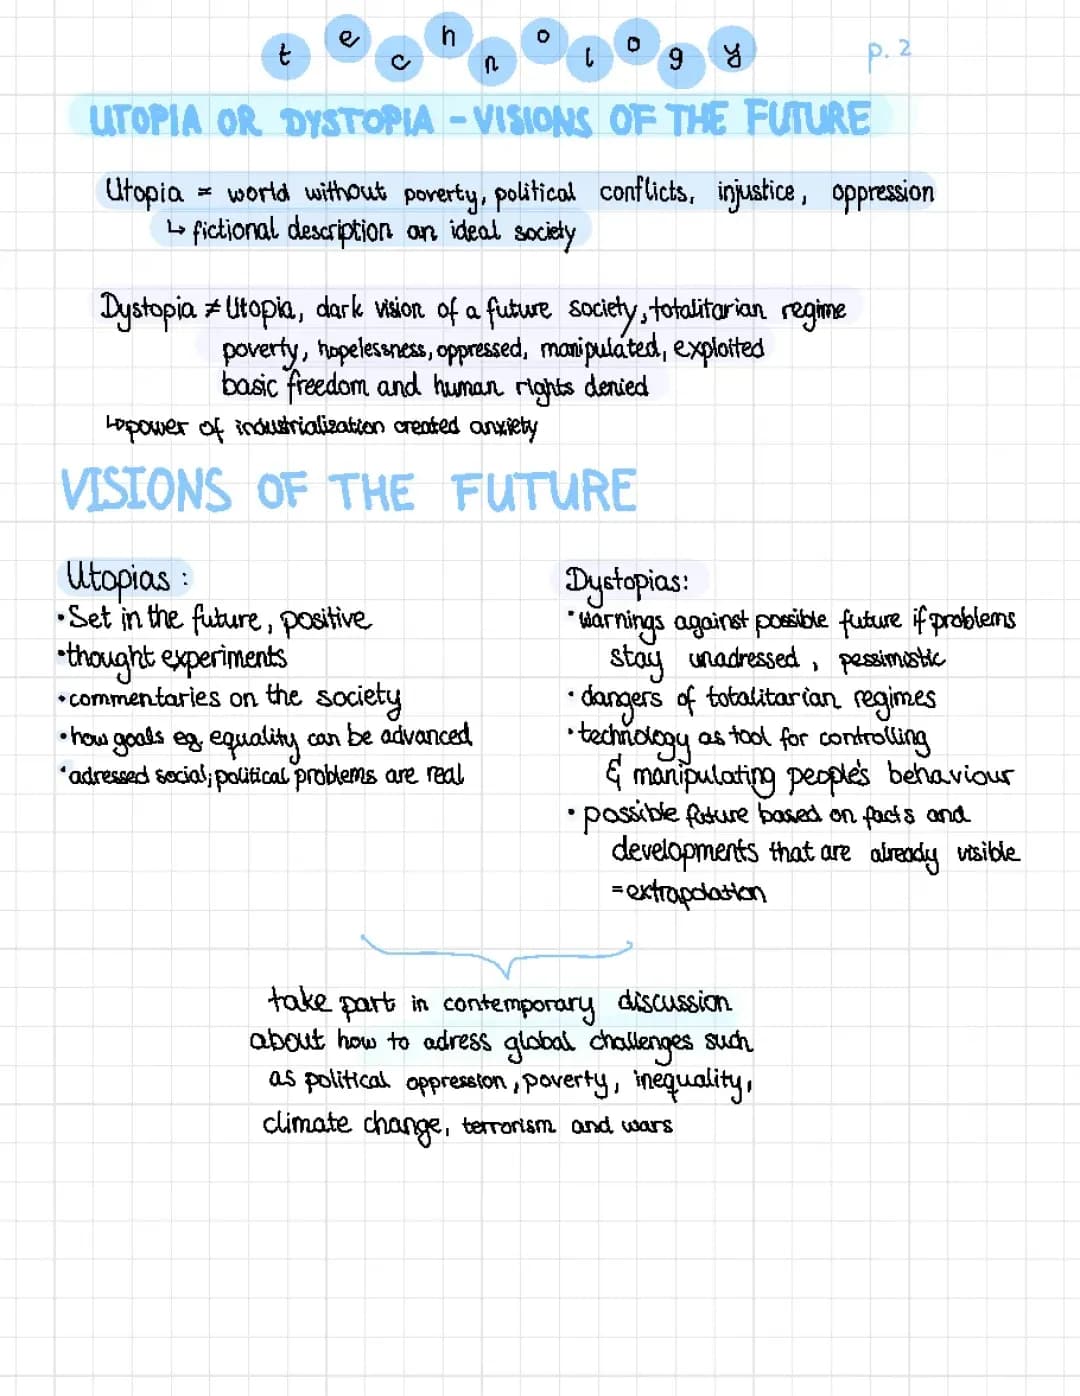 technology
p. 2
UTOPIA OR DYSTOPIA - VISIONS OF THE FUTURE
Utopia = world without poverty, political conflicts, injustice, oppression
↳ fictional description an ideal society
Dystopia ≠ Utopia, dark vision of a future society, totalitarian regime
poverty, hopelessness, oppressed, manipulated, exploited
basic freedom and human rights denied
↳ power of industrialization created anxiety
VISIONS OF THE FUTURE
Utopias:
• Set in the future, positive
• thought experiments
• commentaries on the society
• how goals eg. equality can be advanced
• adressed social; political problems are real
Dystopias:
• warnings against possible future if problems
stay unadressed, pessimistic
• dangers of totalitarian regimes
• technology as tool for controlling
& manipulating people's behaviour
• possible future based on facts and
developments that are already visible
= extrapolation
take part in contemporary discussion
about how to adress global challenges such
as political oppression, poverty, inequality,
climate change, terrorism and wars